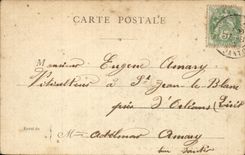 CARTE POSTALE
Monsieur Eugène Amary
Viticulteur à St Jean le Blanc
près d'Orléans
(Loiret)
Envoi de M Adelmar Amary